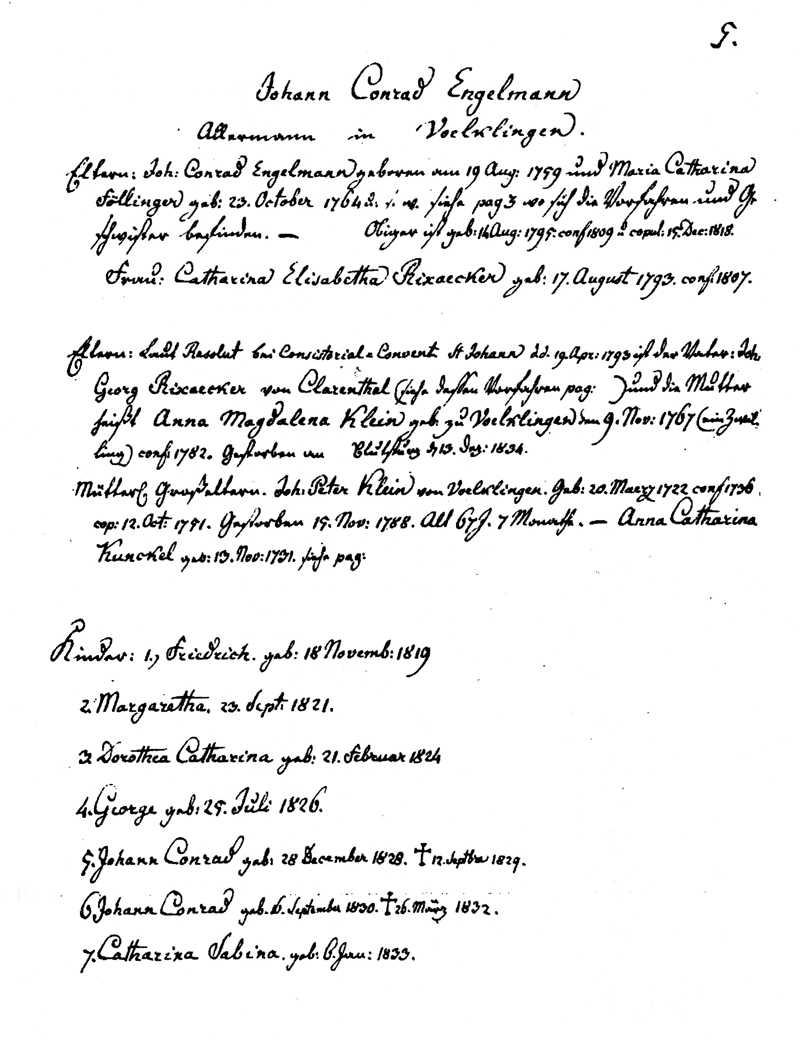 5.
Johann Conrad Engelmann
Akkermann in Voelklingen.
Eltern: Joh: Conrad Engelmann geboren am 19 Aug: 1759 und Maria Catharina
Föllinger geb: 23. October 1762. s. w. siehe pag 3 wo sich die Vorfahren und Ge
schwister befinden. — Obiger ist geb: 14 Aug: 1795. conf 1809 u copul: 15. Dec: 1818.
Frau: Catharina Elisabetha Rixaecker geb: 17. August 1793. conf: 1807.
Eltern: Laut Resolut bei Consistorial-Convent St Johann dd. 19. Apr: 1793 ist der Vater: Joh.
Georg Rixaecker von Clarenthal (siehe dessen Vorfahren pag: ) und die Mutter
heißt Anna Magdalena Klein geb: zu Voelklingen den 9. Nov: 1767 (ein Zwil-
ling) conf: 1782. Gestorben an Blutsturz d 13. Dez: 1834.
Mütterl. Großeltern. Joh: Peter Klein von Voelklingen. Geb: 20. Maerz 1722 conf 1736.
cop: 12. Oct: 1751. Gestorben 15. Nov: 1788. Alt 67 J. 7 Monathe. — Anna Catharina
Kunckel geb: 13. Nov: 1731. siehe pag:
Kinder: 1., Friedrich. geb: 18 Novemb: 1819
2. Margaretha. 23. Sept: 1821.
3. Dorothea Catharina geb: 21. Februar 1824
4. George geb: 25. Juli 1826.
5. Johann Conrad geb: 28 December 1828. † 12. Septbr 1829.
6. Johann Conrad geb. 16. September 1830. † 26. März 1832.
7. Catharina Sabina. geb: 6. Jan: 1833.